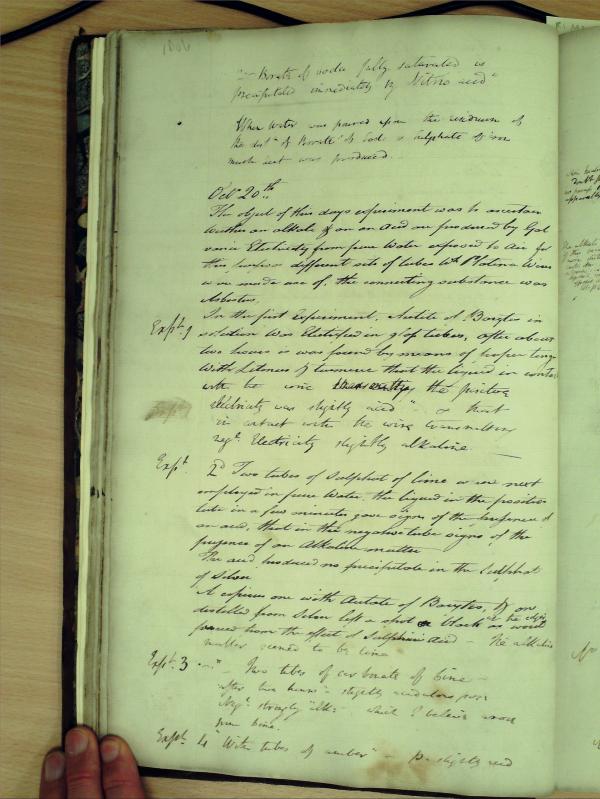 1806
"— Borate of soda fully saturated is
precipitated immediately by Nitric acid"
When Water was poured upon the residuum of
the dist<sup>n</sup> of Borate of Soda & sulphate of iron
much heat was produced.
Oct<sup>r</sup> 20<sup>th</sup>
The object of this days experiment was to ascertain
whether an alkali & or an Acid are produced by Gal
vanic Electricity from pure Water exposed to Air for
this purpose different sets of tubes Wth Platina Wires
were made use of, the connecting substance was
Asbestus.
Expt. 1 In the first Experiment, Acetite of Barytes in
solution was Electrified in glass tubes, after about
two hours it was found by means of paper tinged
With Litmus & turmeric that the liquid in contact
with the wire the positive
Electricity was slightly acid" — & that
in contact with the wire transmitting
neg<sup>e</sup> Electricity slightly alkaline —
Expt. 2<sup>d</sup> Two tubes of Sulphat of lime were next
employed in pure Water, the liquid in the positive
tube in a few minutes gave signs of the presence of
an acid, that in the negative tube signs of the
presence of an Alkaline matter
The acid produced no precipitate in the Sulphat
of Silver
A copious one with Acetate of Barytes, & on
distilled from Silver left a spot black as the edges
from the effect of Sulphuric Acid — The alkaline
matter seemed to be lime
Expt. 3 " — Two tubes of carbonate of lime —
after two hours — slightly acidulous pos:
Neg<sup>e</sup> strongly alk: — which I believe arose
from lime.
Expt. 4 "With tubes of amber" — P. slightly acid